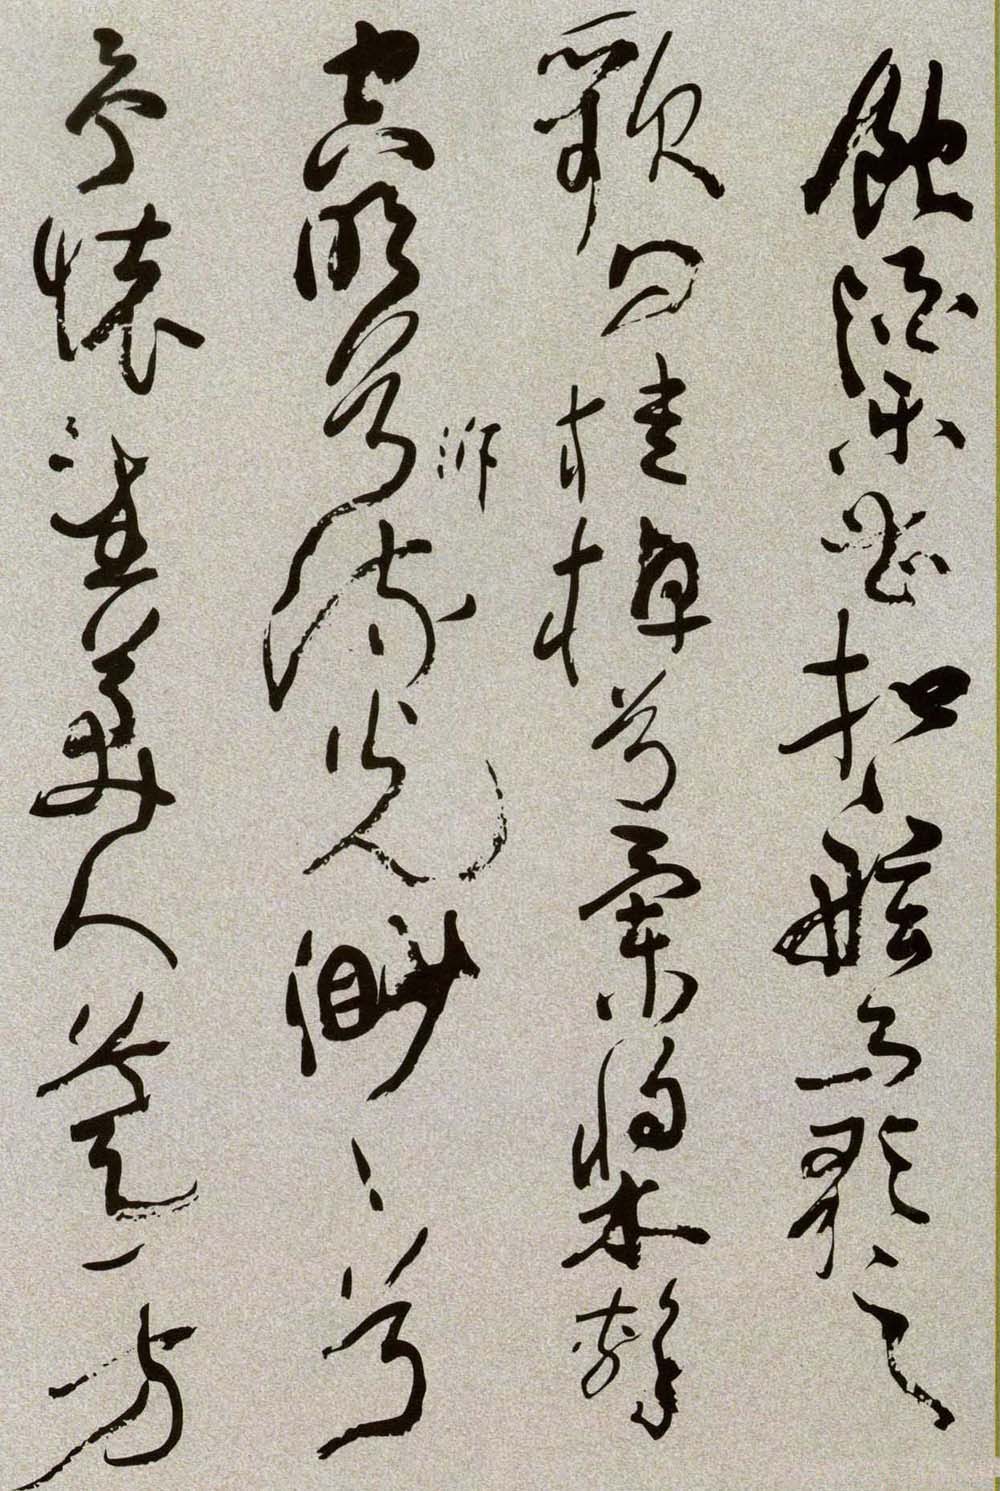 飲酒樂甚扣舷而歌之
歌曰桂棹兮蘭槳擊
空明兮泝流光渺〻兮
予懷望美人兮天一方